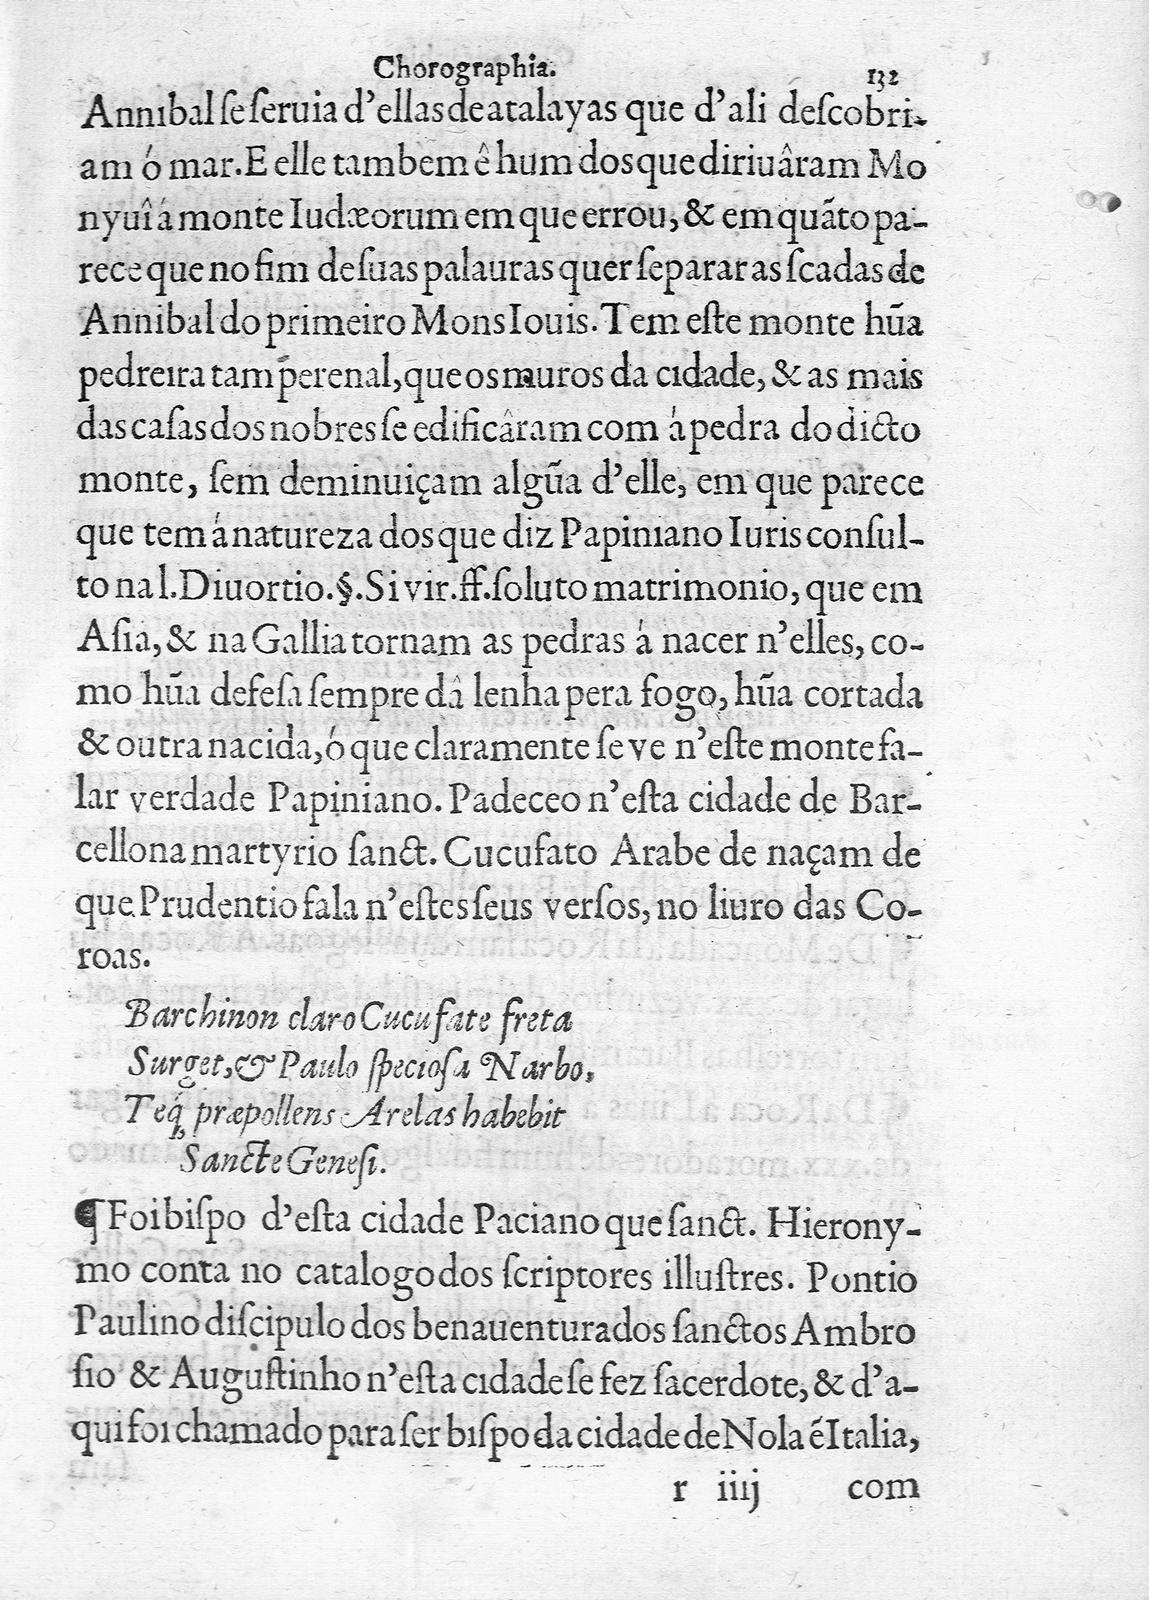 Chorographia. 132
Annibal ſe ſeruia d'ellas de atalayas que d'ali deſcobri-
am ó mar. E elle tambem ê hum dos que diriuâram Mo
nyuî á monte Iudæorum em que errou, & em quãto pa-
rece que no fim de ſuas palauras quer ſeparar as ſcadas de
Annibal do primeiro Mons Iouis. Tem eſte monte hũa
pedreira tam perenal, que os muros da cidade, & as mais
das caſas dos nobres ſe edificâram com á pedra do dicto
monte, ſem deminuiçam algũa d'elle, em que parece
que tem á natureza dos que diz Papiniano Iuris conſul-
to na l. Diuortio. §. Si vir. ff. ſoluto matrimonio, que em
Aſia, & na Gallia tornam as pedras á nacer n'elles, co-
mo hũa defeſa ſempre dâ lenha pera fogo, hũa cortada
& outra nacida, ó que claramente ſe ve n'eſte monte fa-
lar verdade Papiniano. Padeceo n'eſta cidade de Bar-
cellona martyrio ſanct. Cucufato Arabe de naçam de
que Prudentio fala n'eſtes ſeus verſos, no liuro das Co-
roas.
Barchinon claro Cucufate freta
Surget, & Paulo ſpecioſa Narbo,
Teq́; præpollens Arelas habebit
Sancte Geneſi.
¶ Foi biſpo d'eſta cidade Paciano que ſanct. Hierony-
mo conta no catalogo dos ſcriptores illuſtres. Pontio
Paulino diſcipulo dos benauenturados ſanctos Ambro
ſio & Auguſtinho n'eſta cidade ſe fez ſacerdote, & d'a-
qui foi chamado para ſer biſpo da cidade de Nola ẽ Italia,
r iiij com